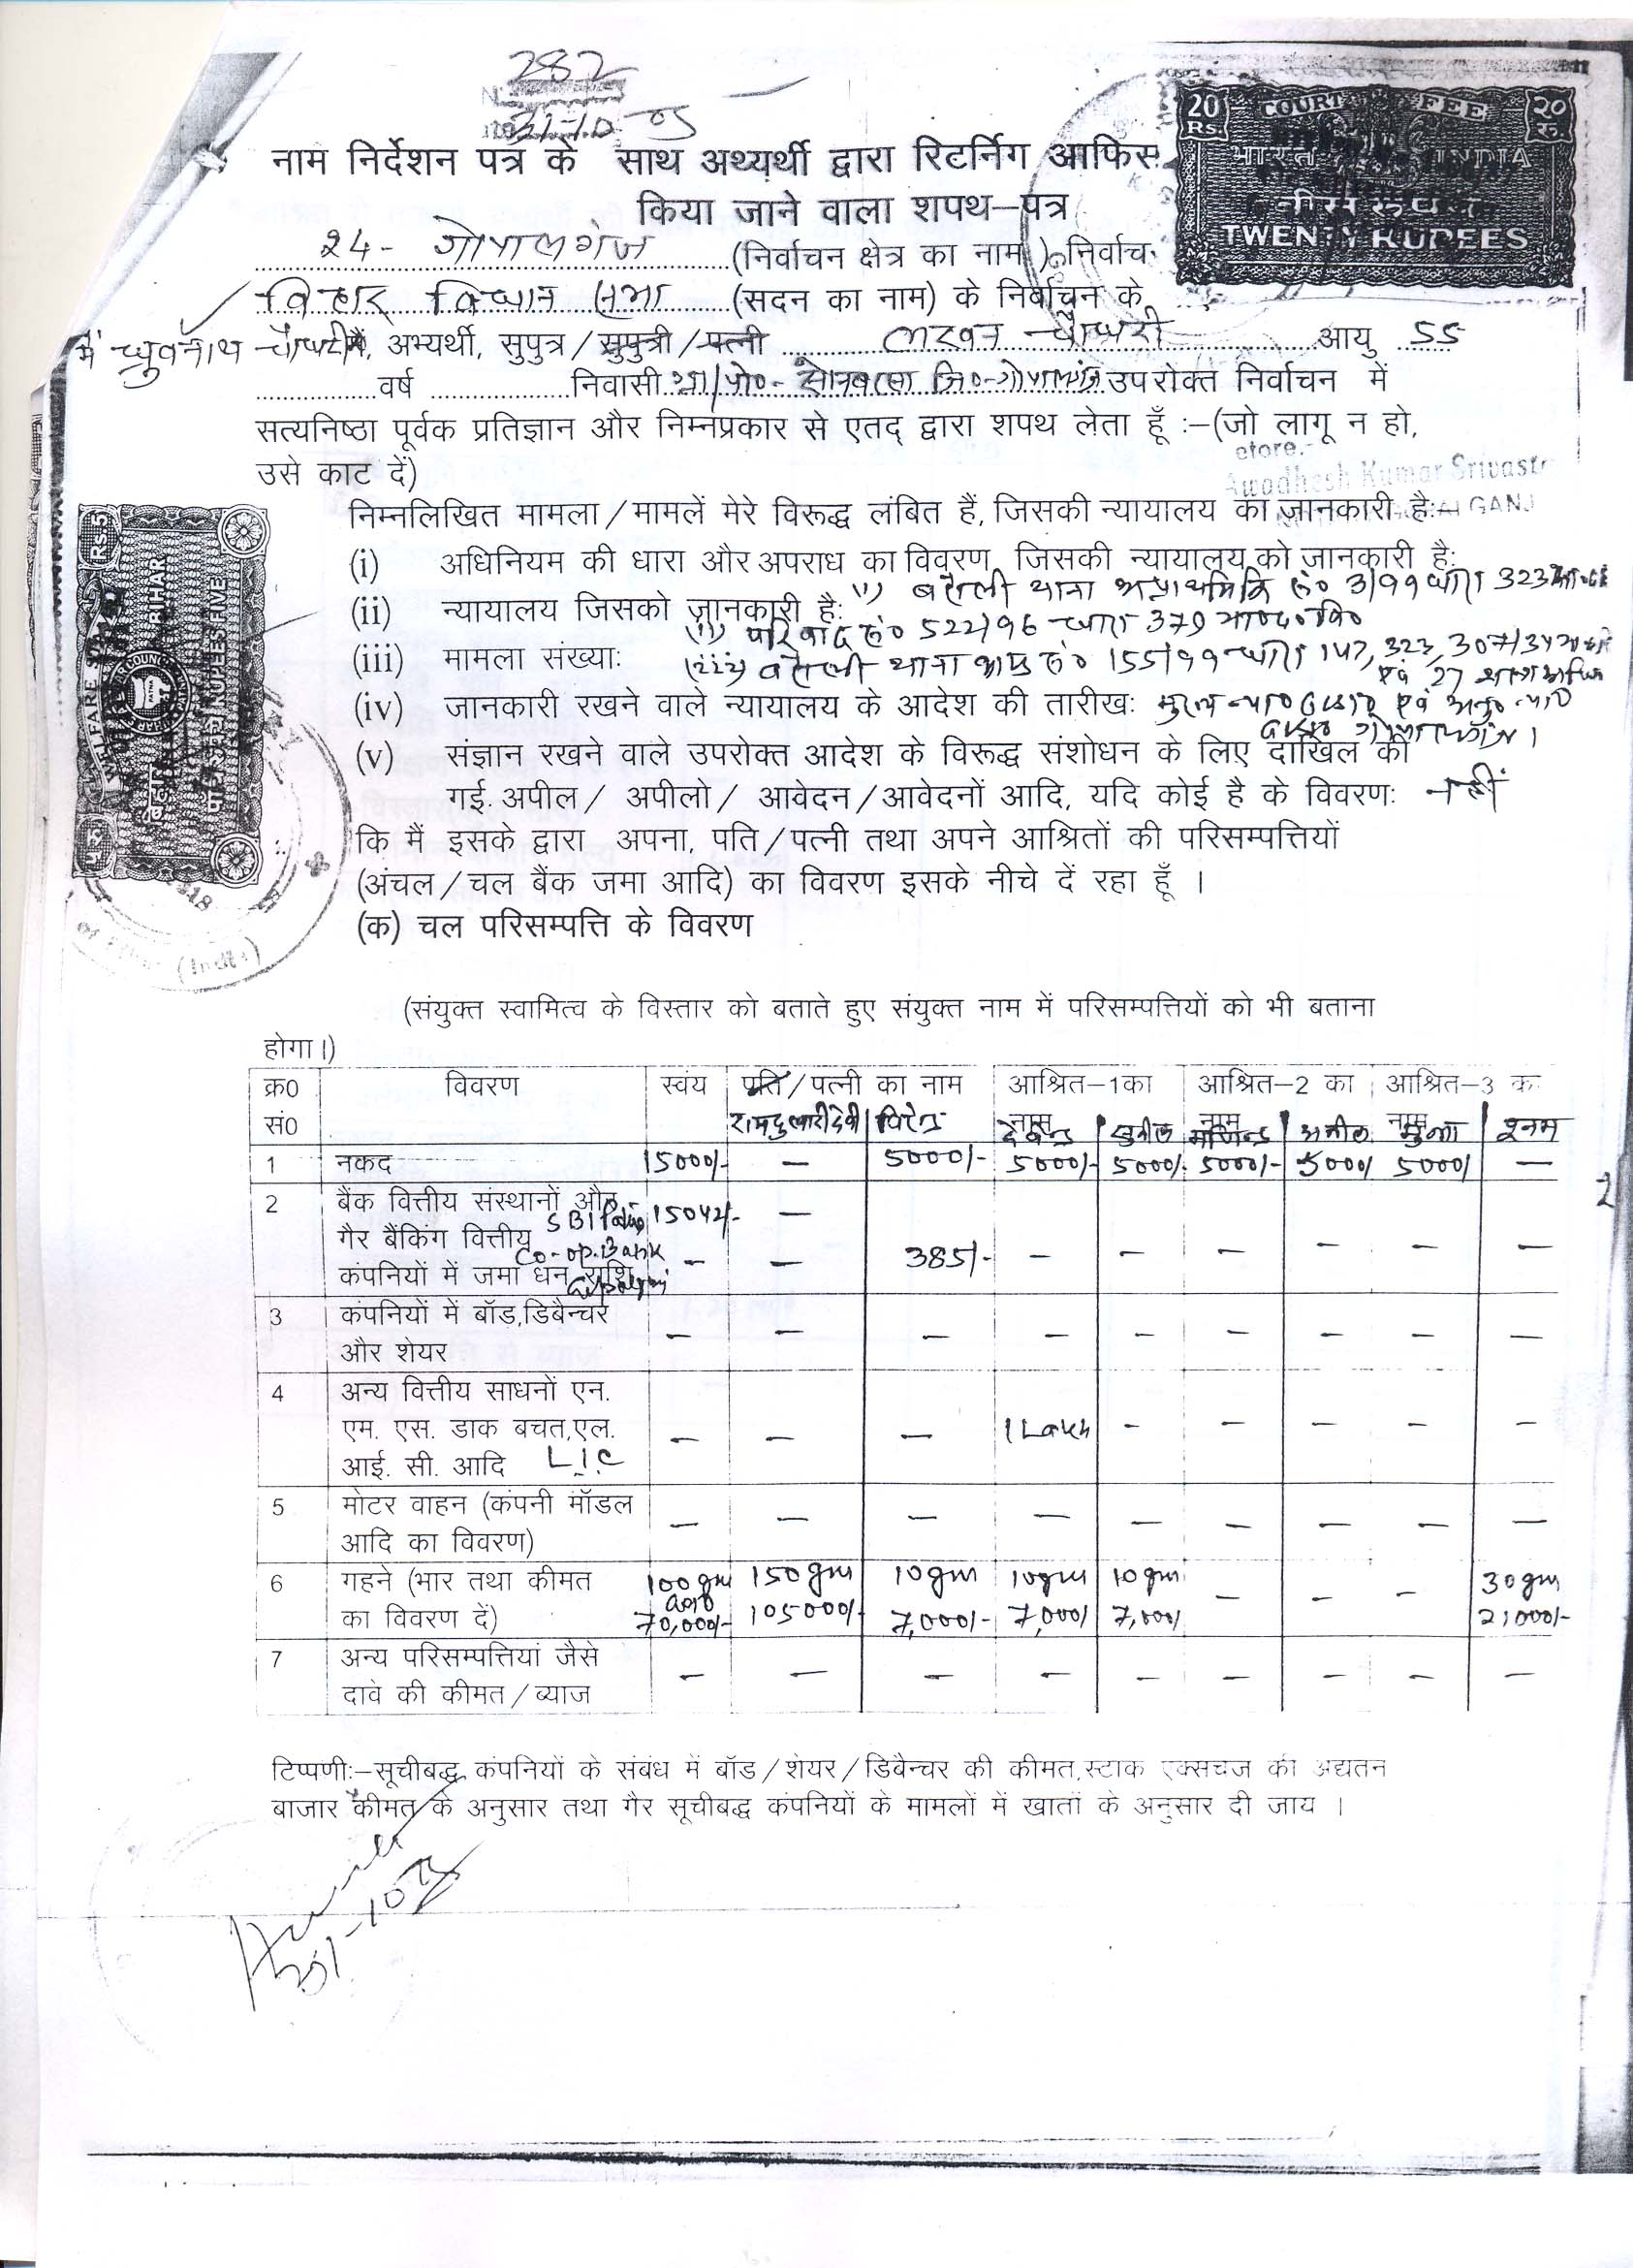 282
31-10-05
नाम निर्देशन पत्र के साथ अथ्यर्थी द्वारा रिटर्निग आफिस
किया जाने वाला शपथ–पत्र
20 Rs. COURT FEE २० रु.
भारत INDIA
बीस रुपये
TWENTY RUPEES
24- गोपालगंज (निर्वाचन क्षेत्र का नाम ) निर्वाच
बिहार विधान सभा (सदन का नाम) के निर्वाचन के
मैं ध्रुवनाथ चौधरी मैं, अभ्यर्थी, सुपुत्र/सुपुत्री/पत्नी लखन चौधरी आयु 55
वर्ष निवासी ग्रा/पो0- सोनबरसा जि0-गोपालगंज उपरोक्त निर्वाचन में
सत्यनिष्ठा पूर्वक प्रतिज्ञान और निम्नप्रकार से एतद् द्वारा शपथ लेता हूँ :–(जो लागू न हो,
उसे काट दें)
efore.-
Awadhesh Kumar Srivast
GANJ
निम्नलिखित मामला/मामलें मेरे विरूद्ध लंबित हैं, जिसकी न्यायालय का जानकारी है:–
(i) अधिनियम की धारा और अपराध का विवरण जिसकी न्यायालय को जानकारी है:
(ii) न्यायालय जिसको जानकारी है: (i) बरौली थाना सं0 3/99 धारा 323
(ii) परिवाद सं0 522/96 धारा 379 भा0द0वि0
(iii) मामला संख्या: (iii) बरौली थाना सं0 155/99 धारा 147, 323, 307/34
एवं 27
(iv) जानकारी रखने वाले न्यायालय के आदेश की तारीख: मुख्य एवं
(v) संज्ञान रखने वाले उपरोक्त आदेश के विरूद्ध संशोधन के लिए दाखिल की
गई. अपील/ अपीलो/ आवेदन/आवेदनों आदि, यदि कोई है के विवरण: नहीं
कि मैं इसके द्वारा अपना, पति/पत्नी तथा अपने आश्रितों की परिसम्पत्तियों
(अंचल/चल बैंक जमा आदि) का विवरण इसके नीचे दें रहा हूँ ।
(क) चल परिसम्पत्ति के विवरण
RS.5
BIHAR
RUPEES FIVE
(India)
(संयुक्त स्वामित्व के विस्तार को बताते हुए संयुक्त नाम में परिसम्पत्तियों को भी बताना
होगा।)
क्र0 विवरण स्वंय पति/पत्नी का नाम आश्रित–1का आश्रित–2 का आश्रित–3 क
सं0 नाम नाम नाम
रामदुलारी देवी सुनील अनील मुन्ना
1 नकद 15000/- — 5000/- 5000/- 5000/- 5000/- 5000/ 5000/ —
2
2 बैंक वित्तीय संस्थानों और SBI 15042/- —
गैर बैंकिंग वित्तीय Co-op. Bank — — 385/- — — — — — —
कंपनियों में जमा धन राशि
3 कंपनियों में बॉड,डिबैन्चर — — — — — — — — —
और शेयर
4 अन्य वित्तीय साधनों एन.
एम. एस. डाक बचत,एल. — — — 1 Lakh — — — — —
आई. सी. आदि L.I.C
5 मोटर वाहन (कंपनी मॉडल — — — — — — — — —
आदि का विवरण)
6 गहने (भार तथा कीमत 100gm 150gm 10gm 10gm 10gm — — — 30gm
का विवरण दें) 70,000/- 105000/- 7,000/- 7,000/ 7,000/ 21000/-
7 अन्य परिसम्पत्तियां जैसे — — — — — — — — —
दावे की कीमत/ब्याज
टिप्पणी:–सूचीबद्ध कंपनियों के संबंध में बॉड/शेयर/डिबैन्चर की कीमत,स्टाक एक्सचज की अद्यतन
बाजार कीमत के अनुसार तथा गैर सूचीबद्ध कंपनियों के मामलों में खातों के अनुसार दी जाय ।